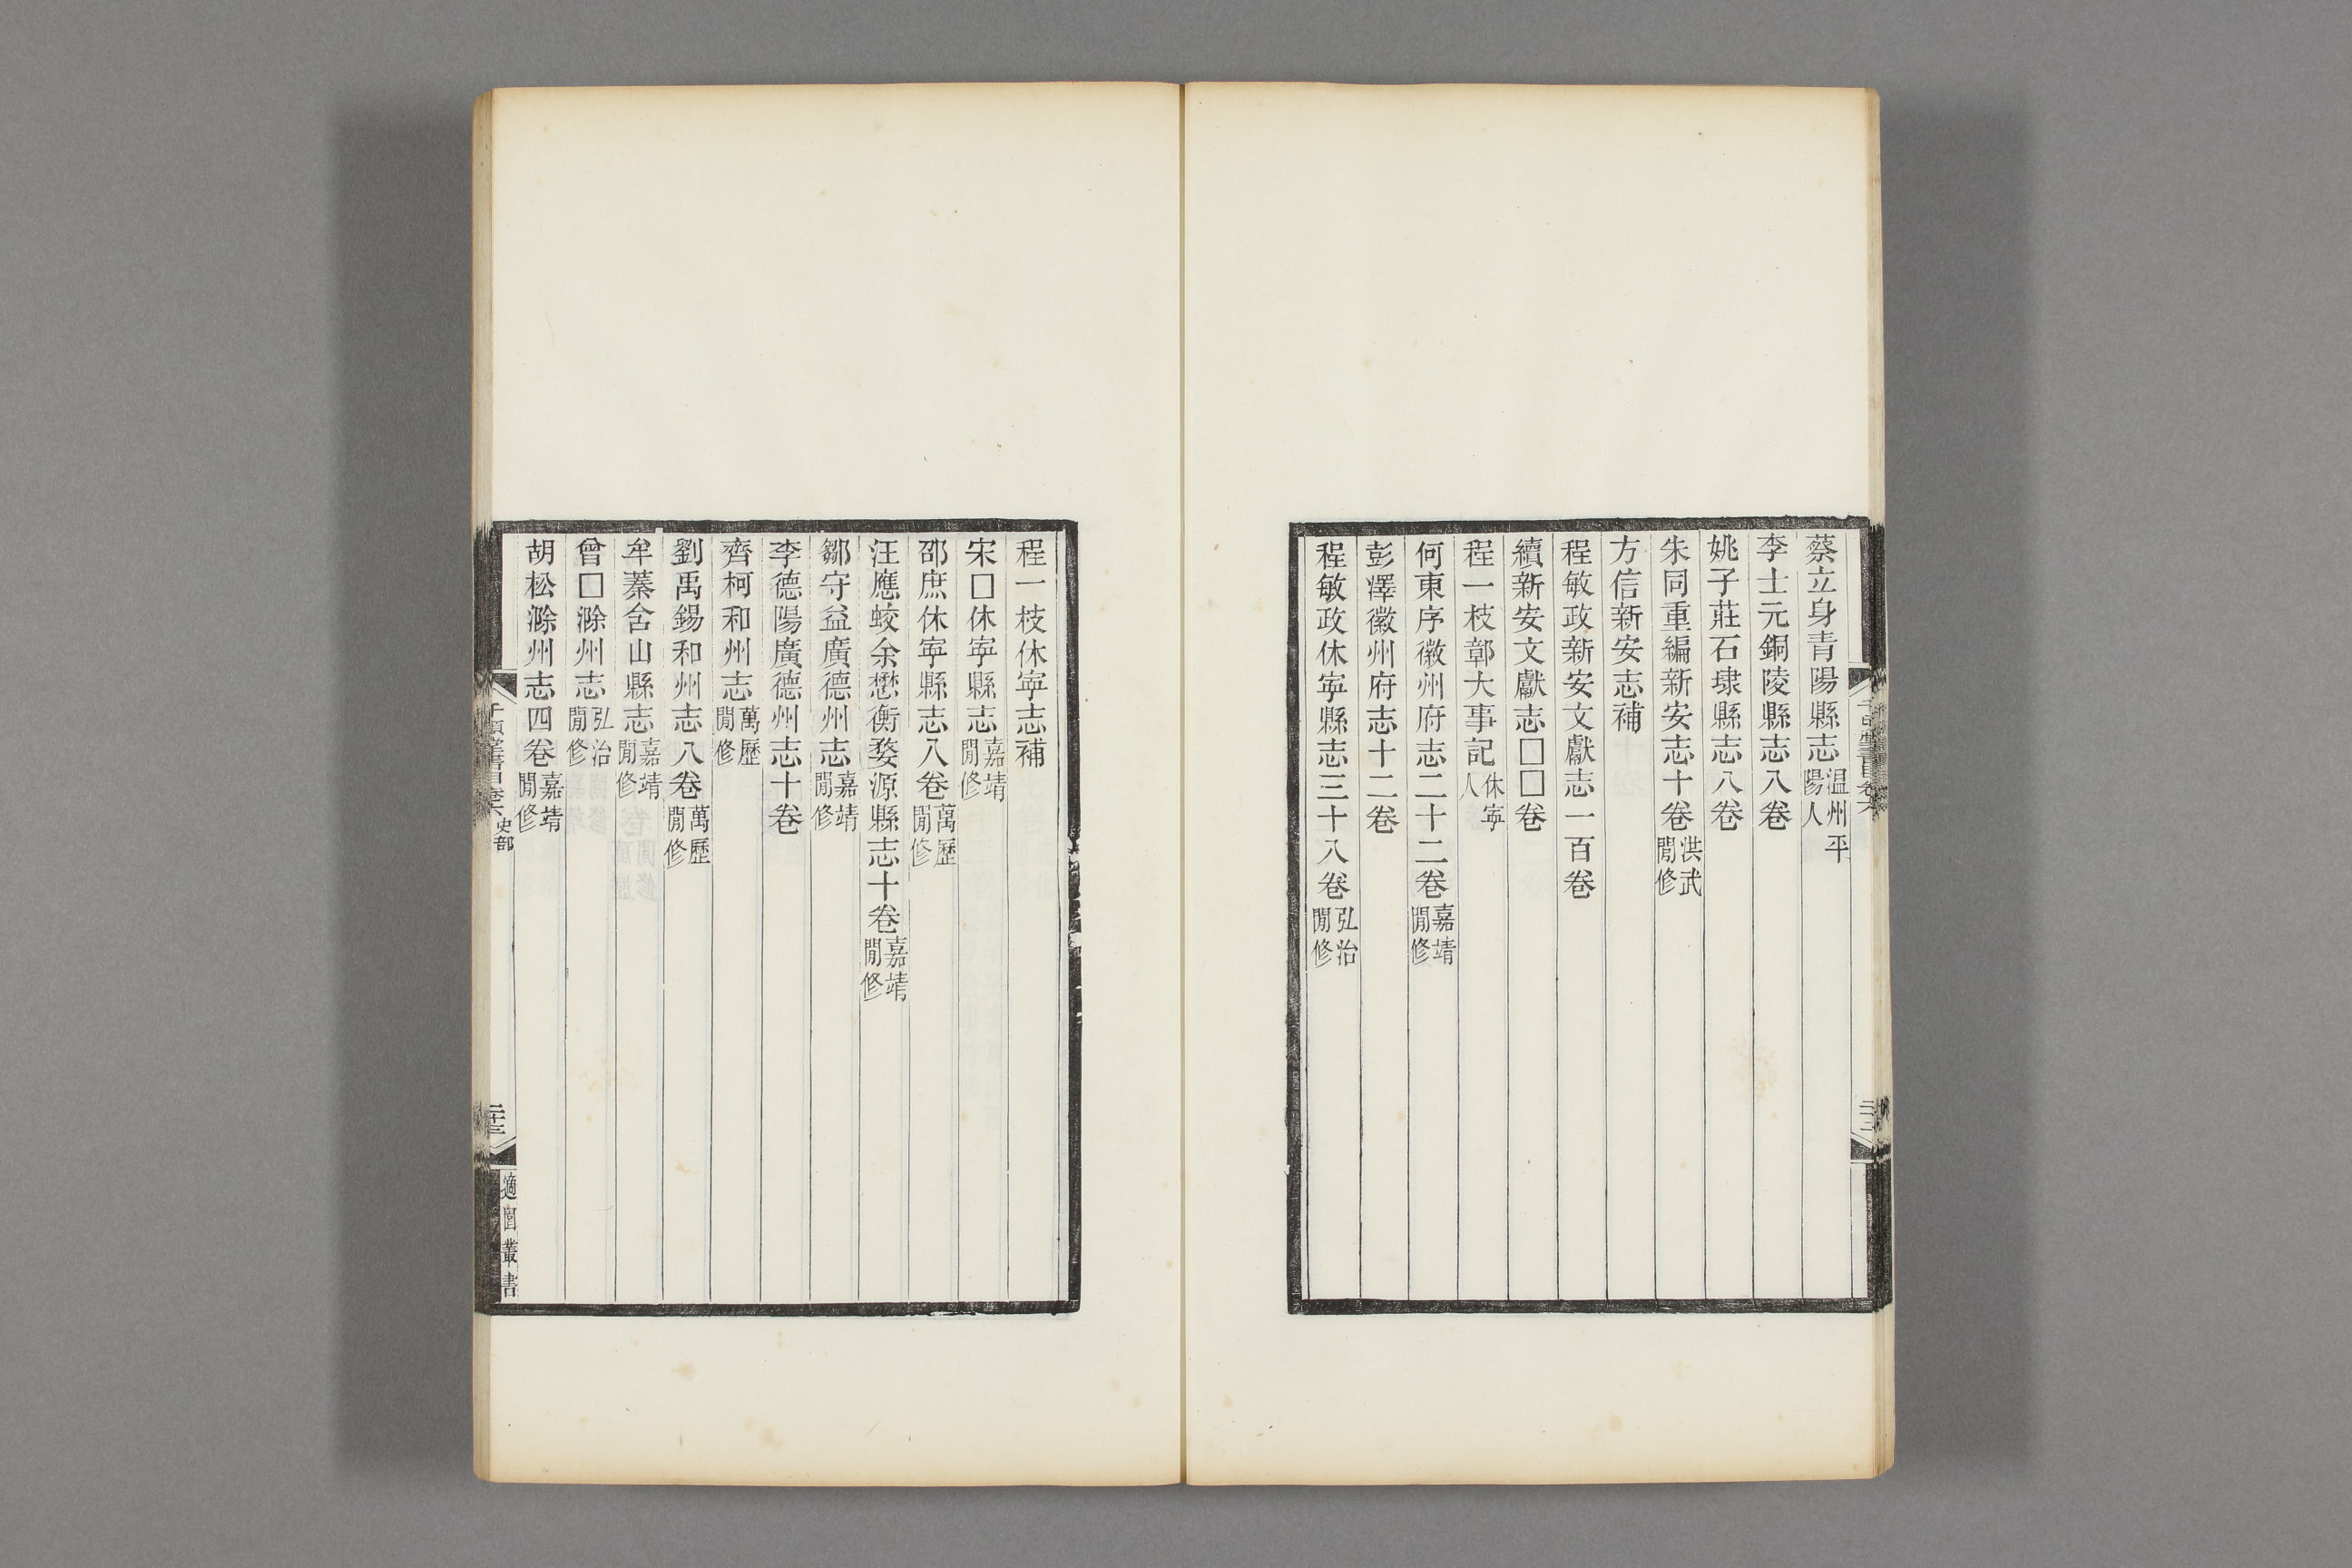 蔡立身青陽縣志温州平陽人
李士元銅陵縣志八卷
姚子莊石埭縣志八卷
朱同重編新安志十卷洪武閒修
方信新安志補
程敏政新安文獻志一百卷
續新安文獻志□□卷
程一枝鄣大事記休寕人
何東序徽州府志二十二卷嘉靖閒修
彭澤徽州府志十二卷
程敏政休寕縣志三十八卷弘治閒修
程一枝休寕志補
宋□休寕縣志嘉靖閒修
邵庶休寕縣志八卷萬歷閒修
汪應蛟余懋衡婺源縣志十卷嘉靖閒修
鄒守益廣德州志嘉靖閒修
李德陽廣德州志十卷
齊柯和州志萬歷閒修
劉禹錫和州志八卷萬歷閒修
牟蓁含山縣志嘉靖閒修
曾□滁州志弘治閒修
胡松滁州志四卷嘉靖閒修
千頃堂書目卷六 史部
二十三
適園叢書